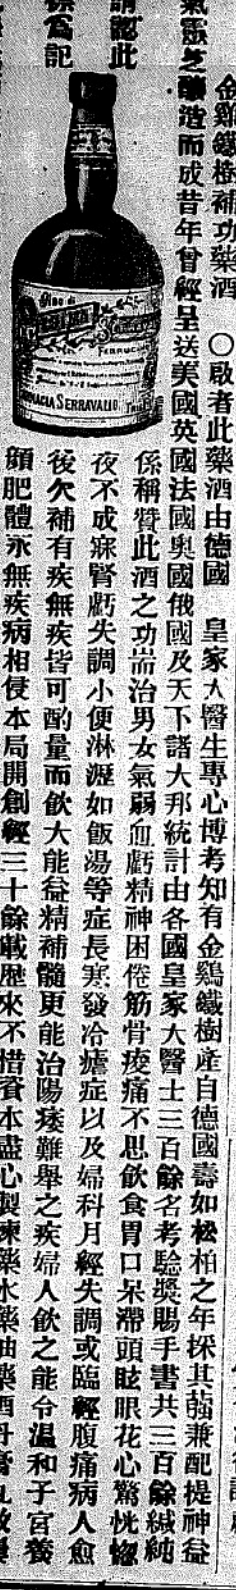 金鷄鐵樹補功藥酒　〇啟者此藥酒由德國　皇家大醫生專心博考知有金鷄鐵樹產自德國壽如松柏之年採其蘤兼配提神益
氣靈之釀造而成昔年曾經呈送美國英國法國奧國俄國及天下諸大邦統計由各國皇家大醫士三百餘名考驗獎賜手書共三百餘緘純
係稱贊此酒之功耑治男女氣弱血虧精神困倦筋骨痠痛不思飲食胃口呆滯頭眩眼花心驚恍惚
夜不成寐腎虧失調小便淋瀝如飯湯等症長寒發冷瘧症以及婦科月經失調或臨經腹痛病人愈
後欠補有疾無疾皆可酌量而飲大能益精補髓更能治陽痿難舉之疾婦人飲之能令溫和子宮養
顏肥體永無疾病相侵本局開創經三十餘載歷來不惜資本盡心製煉藥水藥油藥酒丹膏丸散
請認此
為記
Vino di
FERRUGINOSO
FARMACIA SERRAVALLO